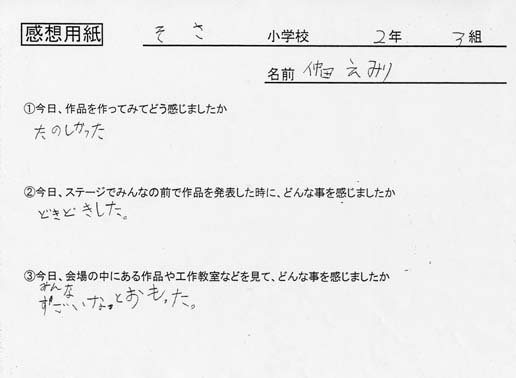 感想用紙 そさ 小学校 2年 3組
名前 仲田 えみり
①今日、作品を作ってみてどう感じましたか
たのしかった
②今日、ステージでみんなの前で作品を発表した時に、どんな事を感じましたか
どきどきした。
③今日、会場の中にある作品や工作教室などを見て、どんな事を感じましたか
みんな
すごいなっとおもった。